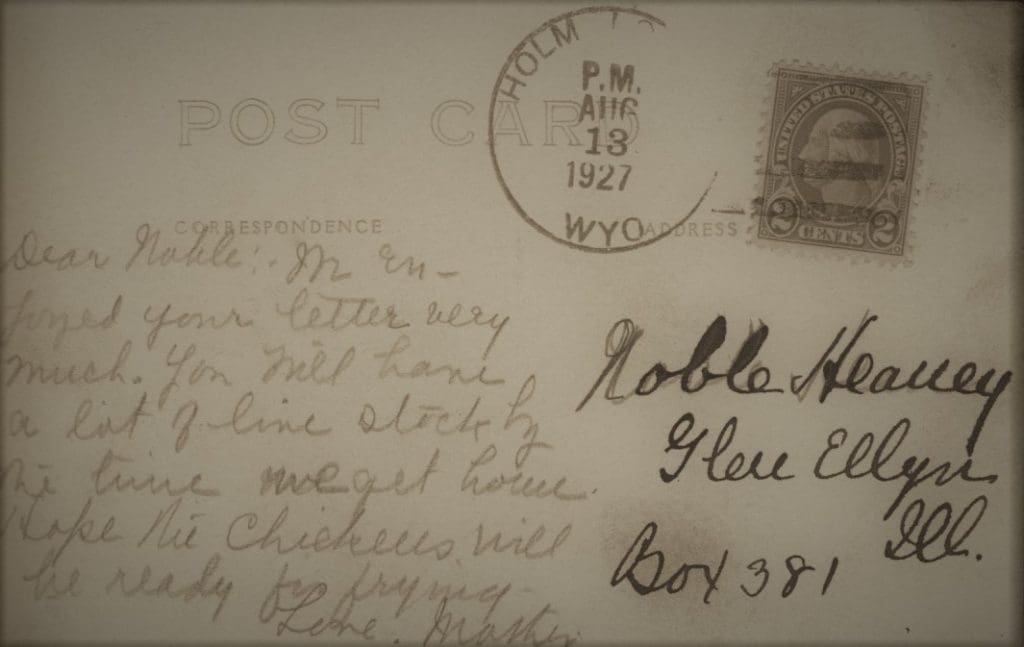 POST CARD
HOLM
P.M.
AUG
13
1927
WYO
UNITED STATES POSTAGE
2 CENTS 2
CORRESPONDENCE
ADDRESS
Dear Noble: We en-
joyed your letter very
much. You will have
a lot of live stock by
the time we get home.
Hope the Chickens will
be ready for frying.
Love. Mother
Noble Heaney
Glen Ellyn
Ill.
Box 381